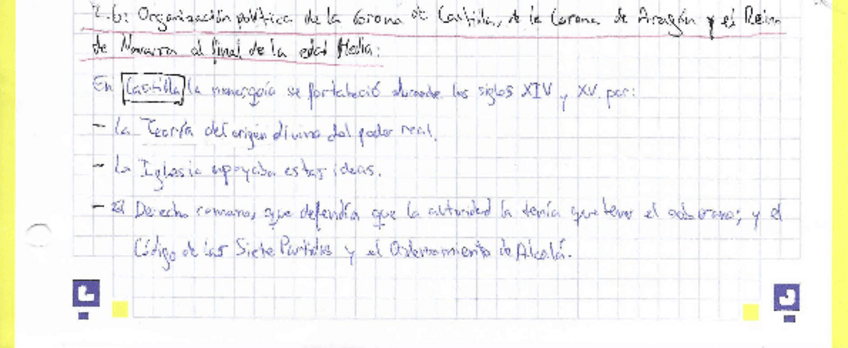 2.6: Organización política de la Corona de Castilla, de la Corona de Aragón y el Reino
de Navarra al final de la edad Media:
En Castilla la monarquía se fortaleció durante los siglos XIV y XV por:
- La Teoría del origen divino del poder real.
- La Iglesia apoyaba estas ideas.
- El Derecho romano, que defendía que la autoridad la tenía que tener el soberano; y el
Código de las Siete Partidas y el Ordenamiento de Alcalá.